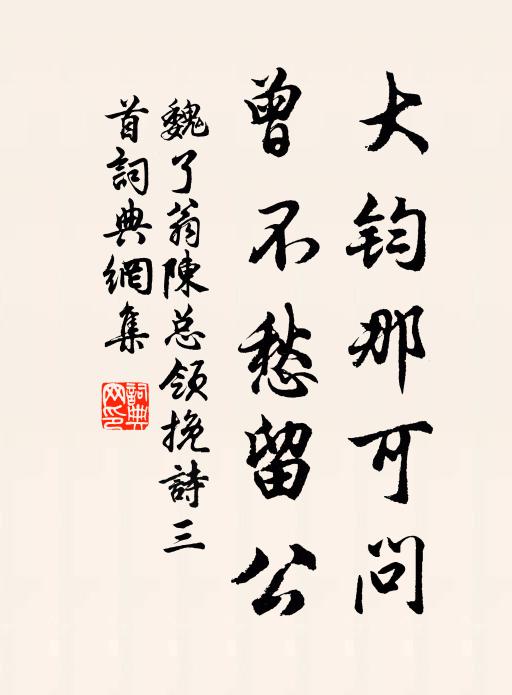 大鈞那可問
曾不愁留公
魏了翁陳总領挽詩三
首詞典網集
詞典网印